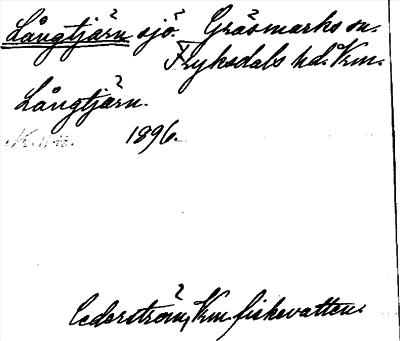 Långtjärn sjö. Gräsmarks sn.
Fryksdals hd. Vrm.
Långtjärn.
1896.
Cederström, Vrm fiskevatten.